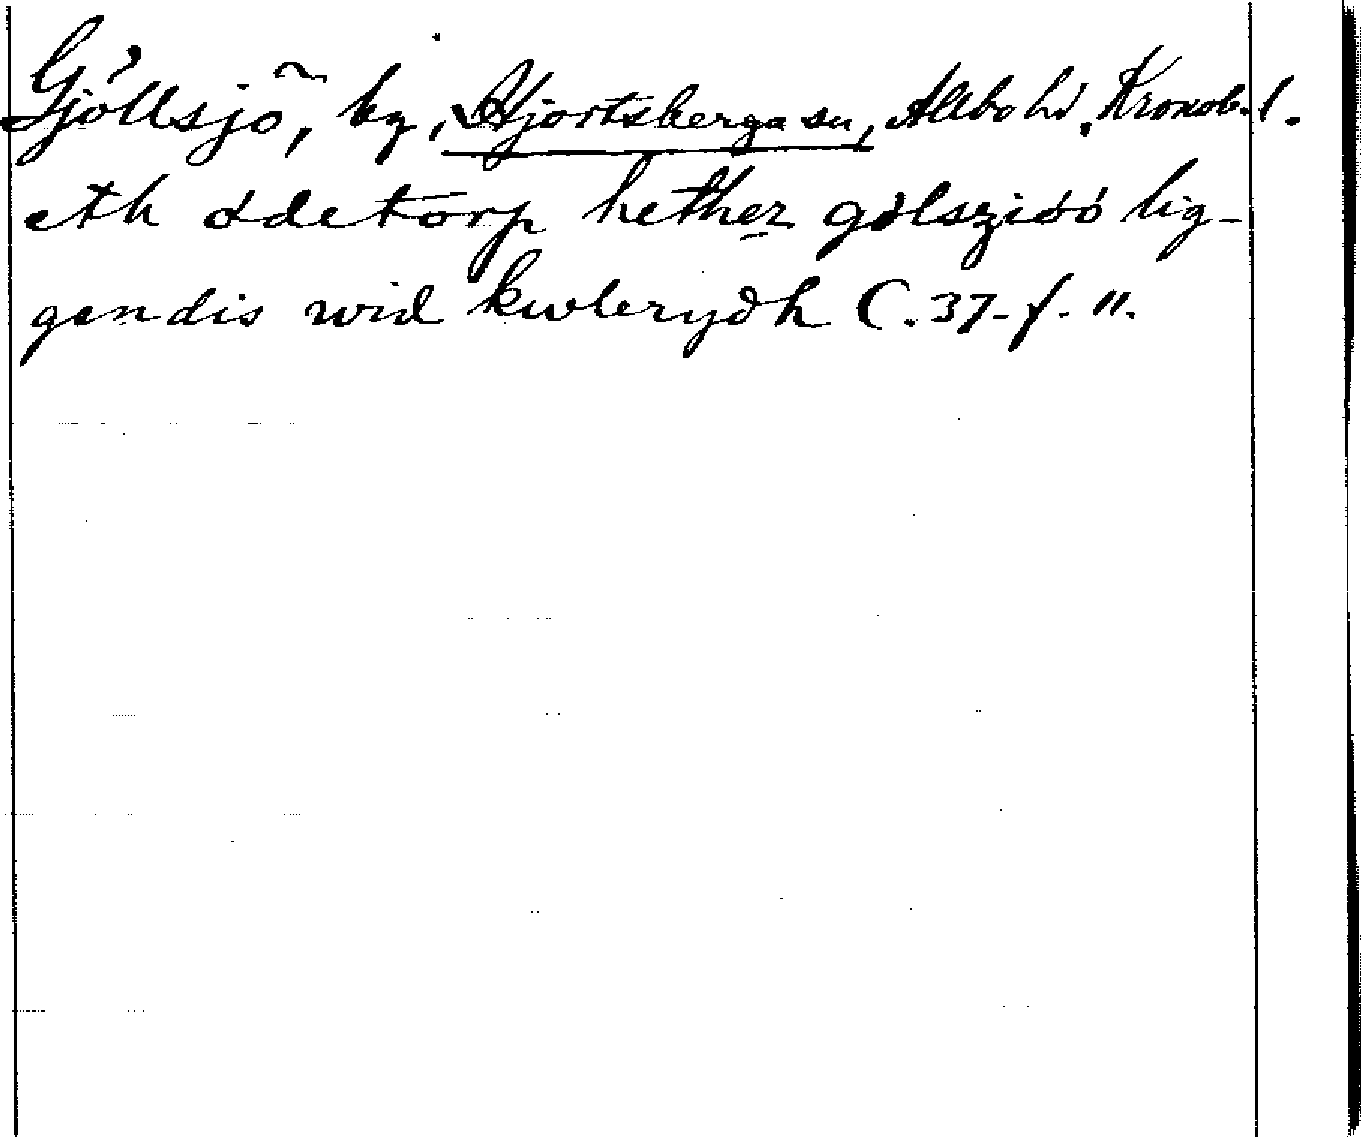 Gjöllsjö, by, Hjortsberga sn, Allbo hd. Kronob. l.
eth ódetorp hether gólszióó lig-
gendis wid kwlerydh C. 37. f. 11.